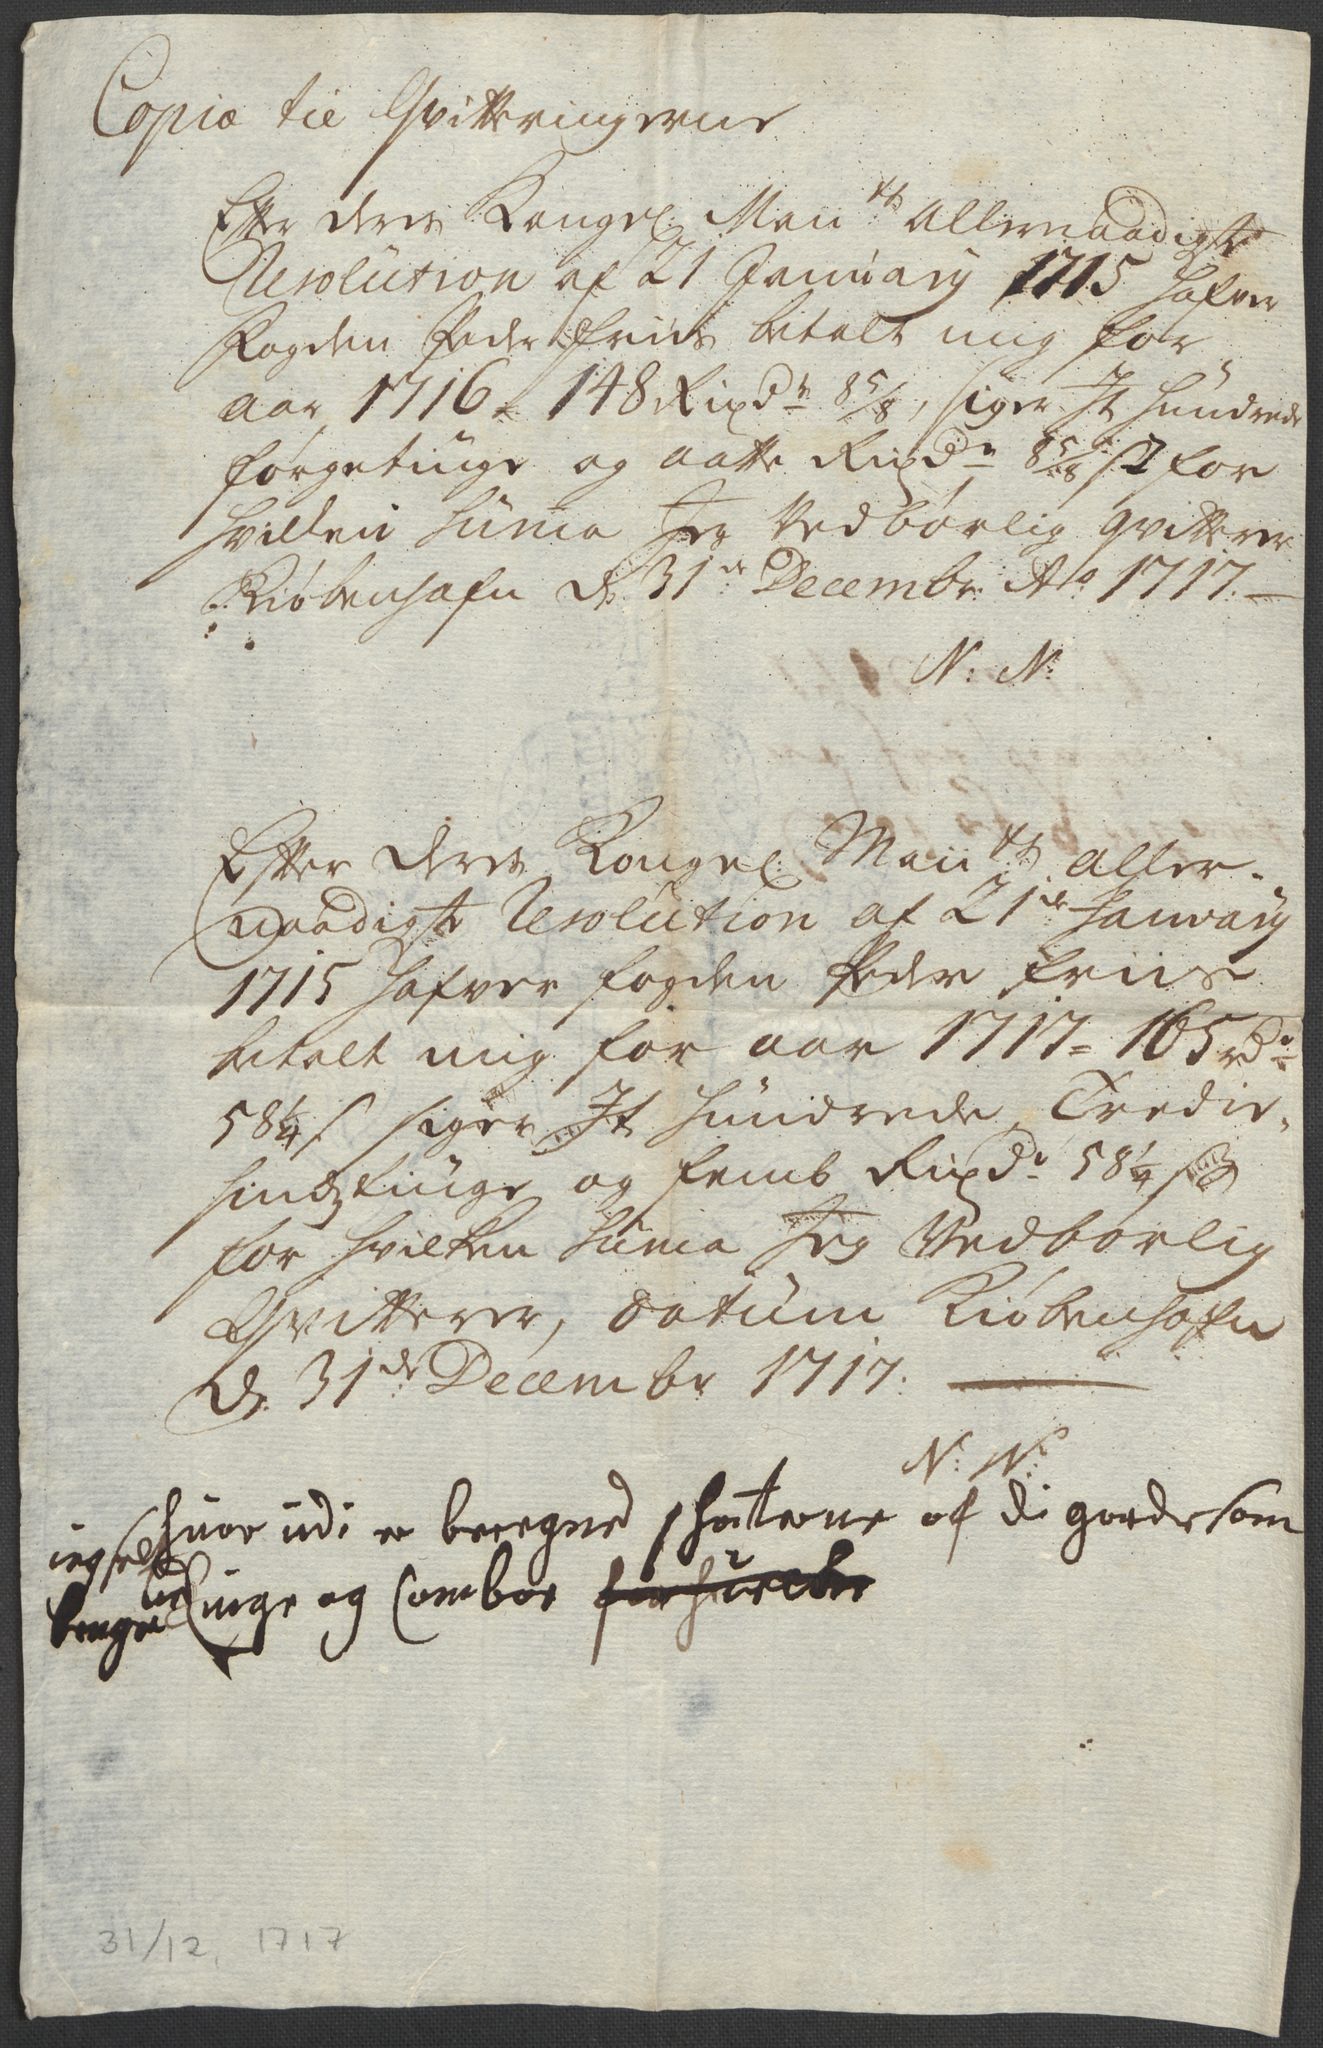 Copia til Qvitteringerne
Efter deres Kongel. Maii.ts Allernaadigste
Resolution af 21 January 1715 hafver
Fogden Peder Friis betalt mig for
aar 1716 - 148 Rixdr 8 5/8, siger Jt hundrede
førgetiuge og aatte Rixdr 8 5/8 s for
hvilken Suma Jeg Vedbørlig qvitterer
Kiøbenhafn d. 31de Decembr Ao 1717.
N: N:
Efter deres Kongel. Maii.ts Aller-
naadigste Resolution af 21de January
1715 hafver fogden Peder Friis
betalt mig for aar 1717 = 165 rdr
58 1/4 s siger Jt hundrede Tredie-
sindztiuge og femb Rixdr 58 1/4 s
for hvilken Suma Jeg Vedbørlig
Qvitterer, datum Kiøbenhafn
d. 31de Decembr 1717.
N: N:
huor udi er beregned schatterne af di gorde som
ieg self
bruger og
31/12, 1717